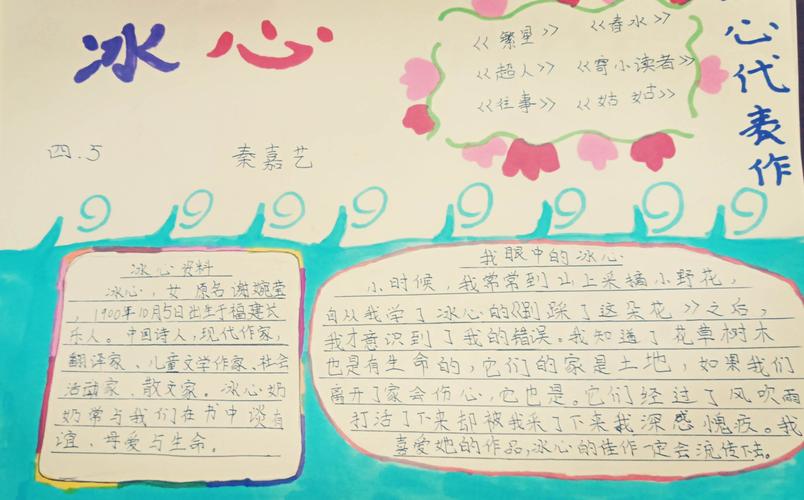 冰心
《繁星》 《春水》
《超人》 《寄小读者》
《往事》 《姑姑》
心代表作
四.5 秦嘉艺
冰心资料
冰心，女 原名谢婉莹
，1900年10月5日出生于福建长
乐人。中国诗人，现代作家，
翻译家、儿童文学作家、社会
活动家、散文家。冰心奶
奶常与我们在书中谈有
谊、母爱与生命。
我眼中的冰心
小时候，我常常到山上采摘小野花，
自从我学了冰心的《别踩了这朵花》之后，
我才意识到了我的错误。我知道了花草树木
也是有生命的，它们的家是土地，如果我们
离开了家会伤心，它也是。它们经过了风吹雨
打活了下来却被我采了下来我深感愧疫。我
喜爱她的作品，冰心的佳作一定会流传下去。